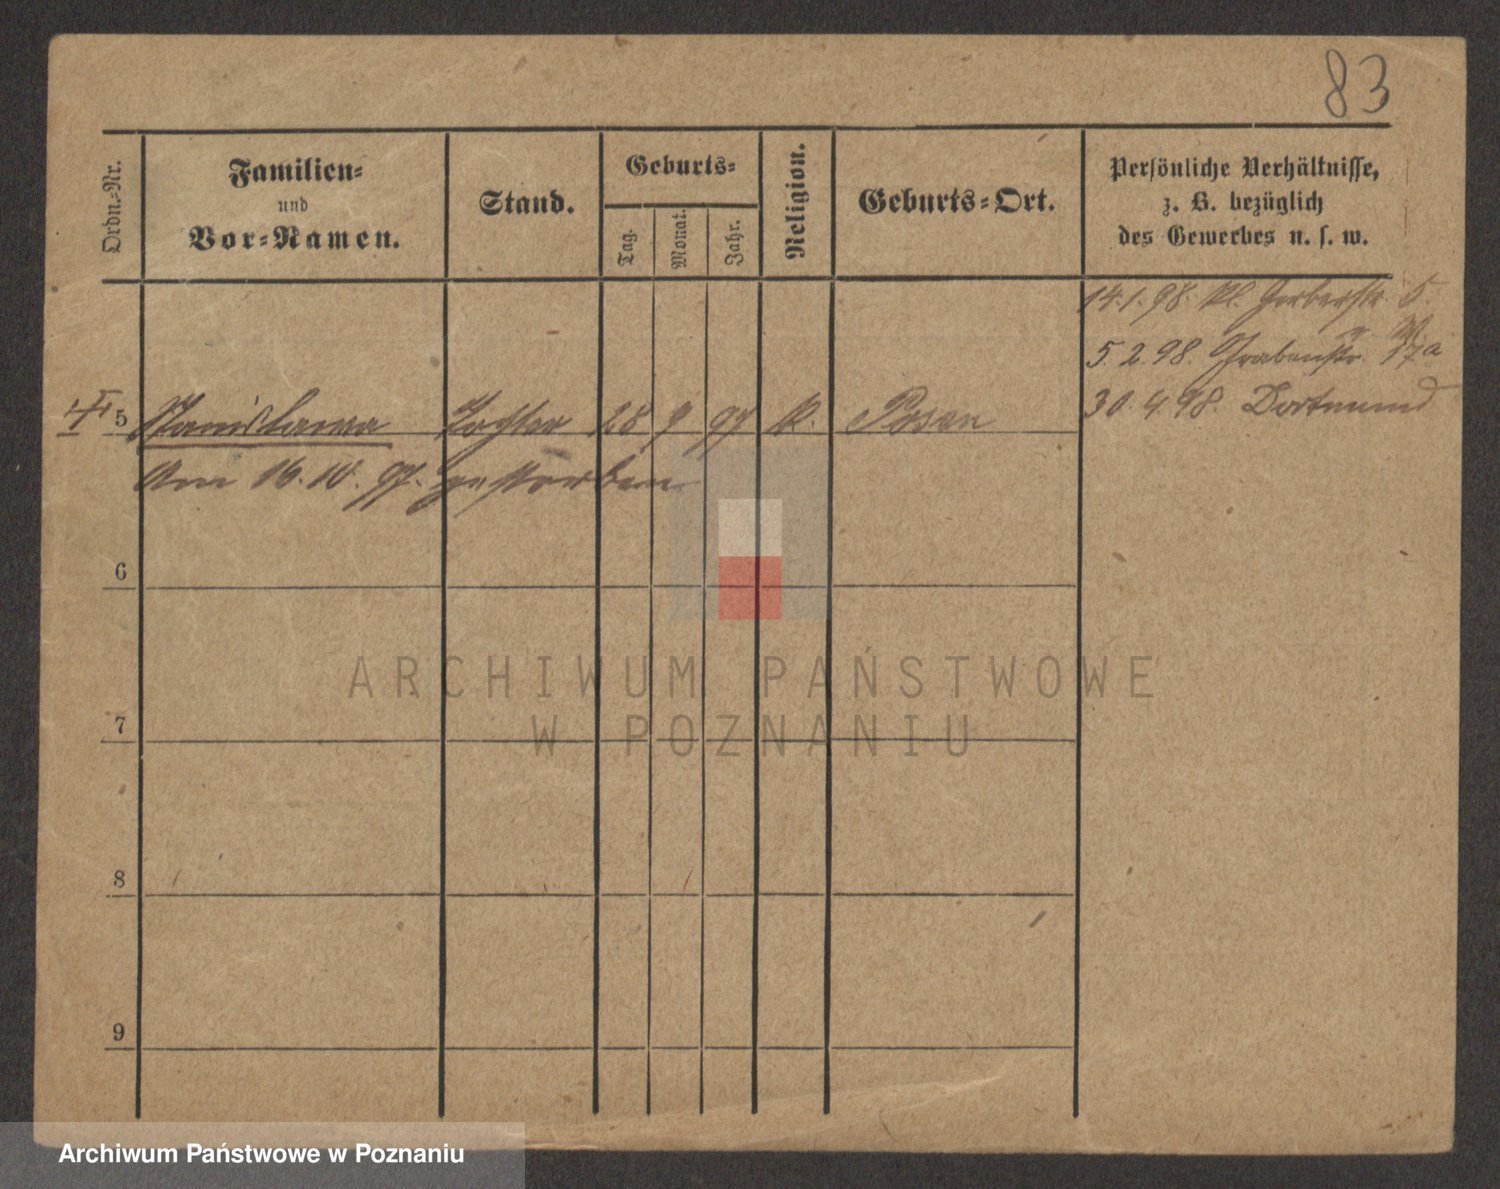 83
Ordn.-Nr.
Familien-
und
Vor-Namen.
Stand.
Geburts-
Tag.
Monat.
Jahr.
Religion.
Geburts-Ort.
Persönliche Verhältnisse,
z. B. bezüglich
des Gewerbes u. s. w.
14.1.98. Kl. Gerberstr. 5.
5.2.98. Grabenstr.
30.4.98. Dortmund
5 Stanislawa Tochter 28 9 97 k. Posen
Am 16.10.97. gestorben
6
7
8
9
ARCHIWUM PAŃSTWOWE
W POZNANIU
Archiwum Państwowe w Poznaniu